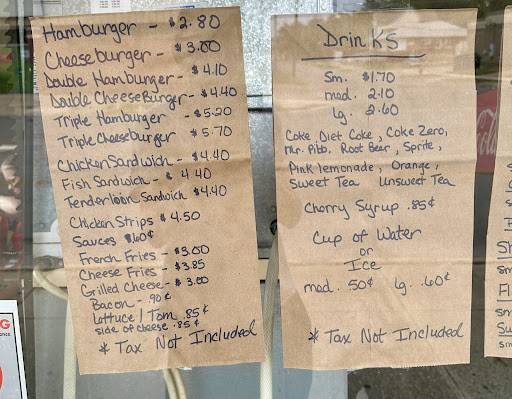 Hamburger - $2.80
Cheeseburger - $3.00
Double Hamburger - $4.10
Double CheeseBurger - $4.40
Triple Hamburger - $5.20
Triple Cheeseburger $5.70
Chicken Sandwich - $4.40
Fish Sandwich - $4.40
Tenderloin Sandwich $4.40
Chicken Strips $4.50
Sauces $.60¢
French Fries - $3.00
Cheese Fries - $3.85
Grilled Cheese - $3.00
Bacon - .90¢
Lettuce / Tom .85¢
side of cheese .85¢
* Tax Not Included
Drinks
Sm. $1.70
med. 2.10
lg. 2.60
Coke, Diet Coke, Coke Zero,
Mr. Pibb, Root Beer, Sprite,
Pink lemonade, Orange,
Sweet Tea Unsweet Tea
Cherry Syrup .85¢
Cup of Water
or
Ice
med. .50¢ lg. .60¢
* Tax Not Included